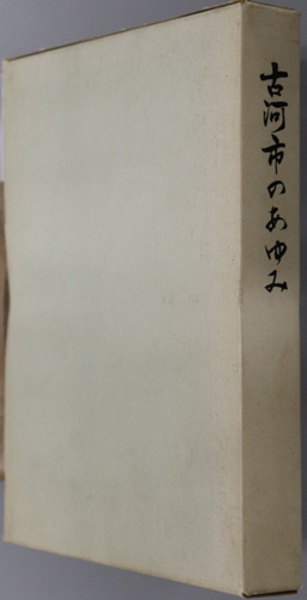 古河市のあゆみ